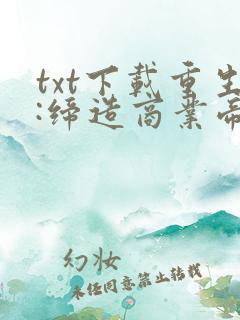 txt下载重生
:缔造商业帝
幻妆
未经同意禁止转载